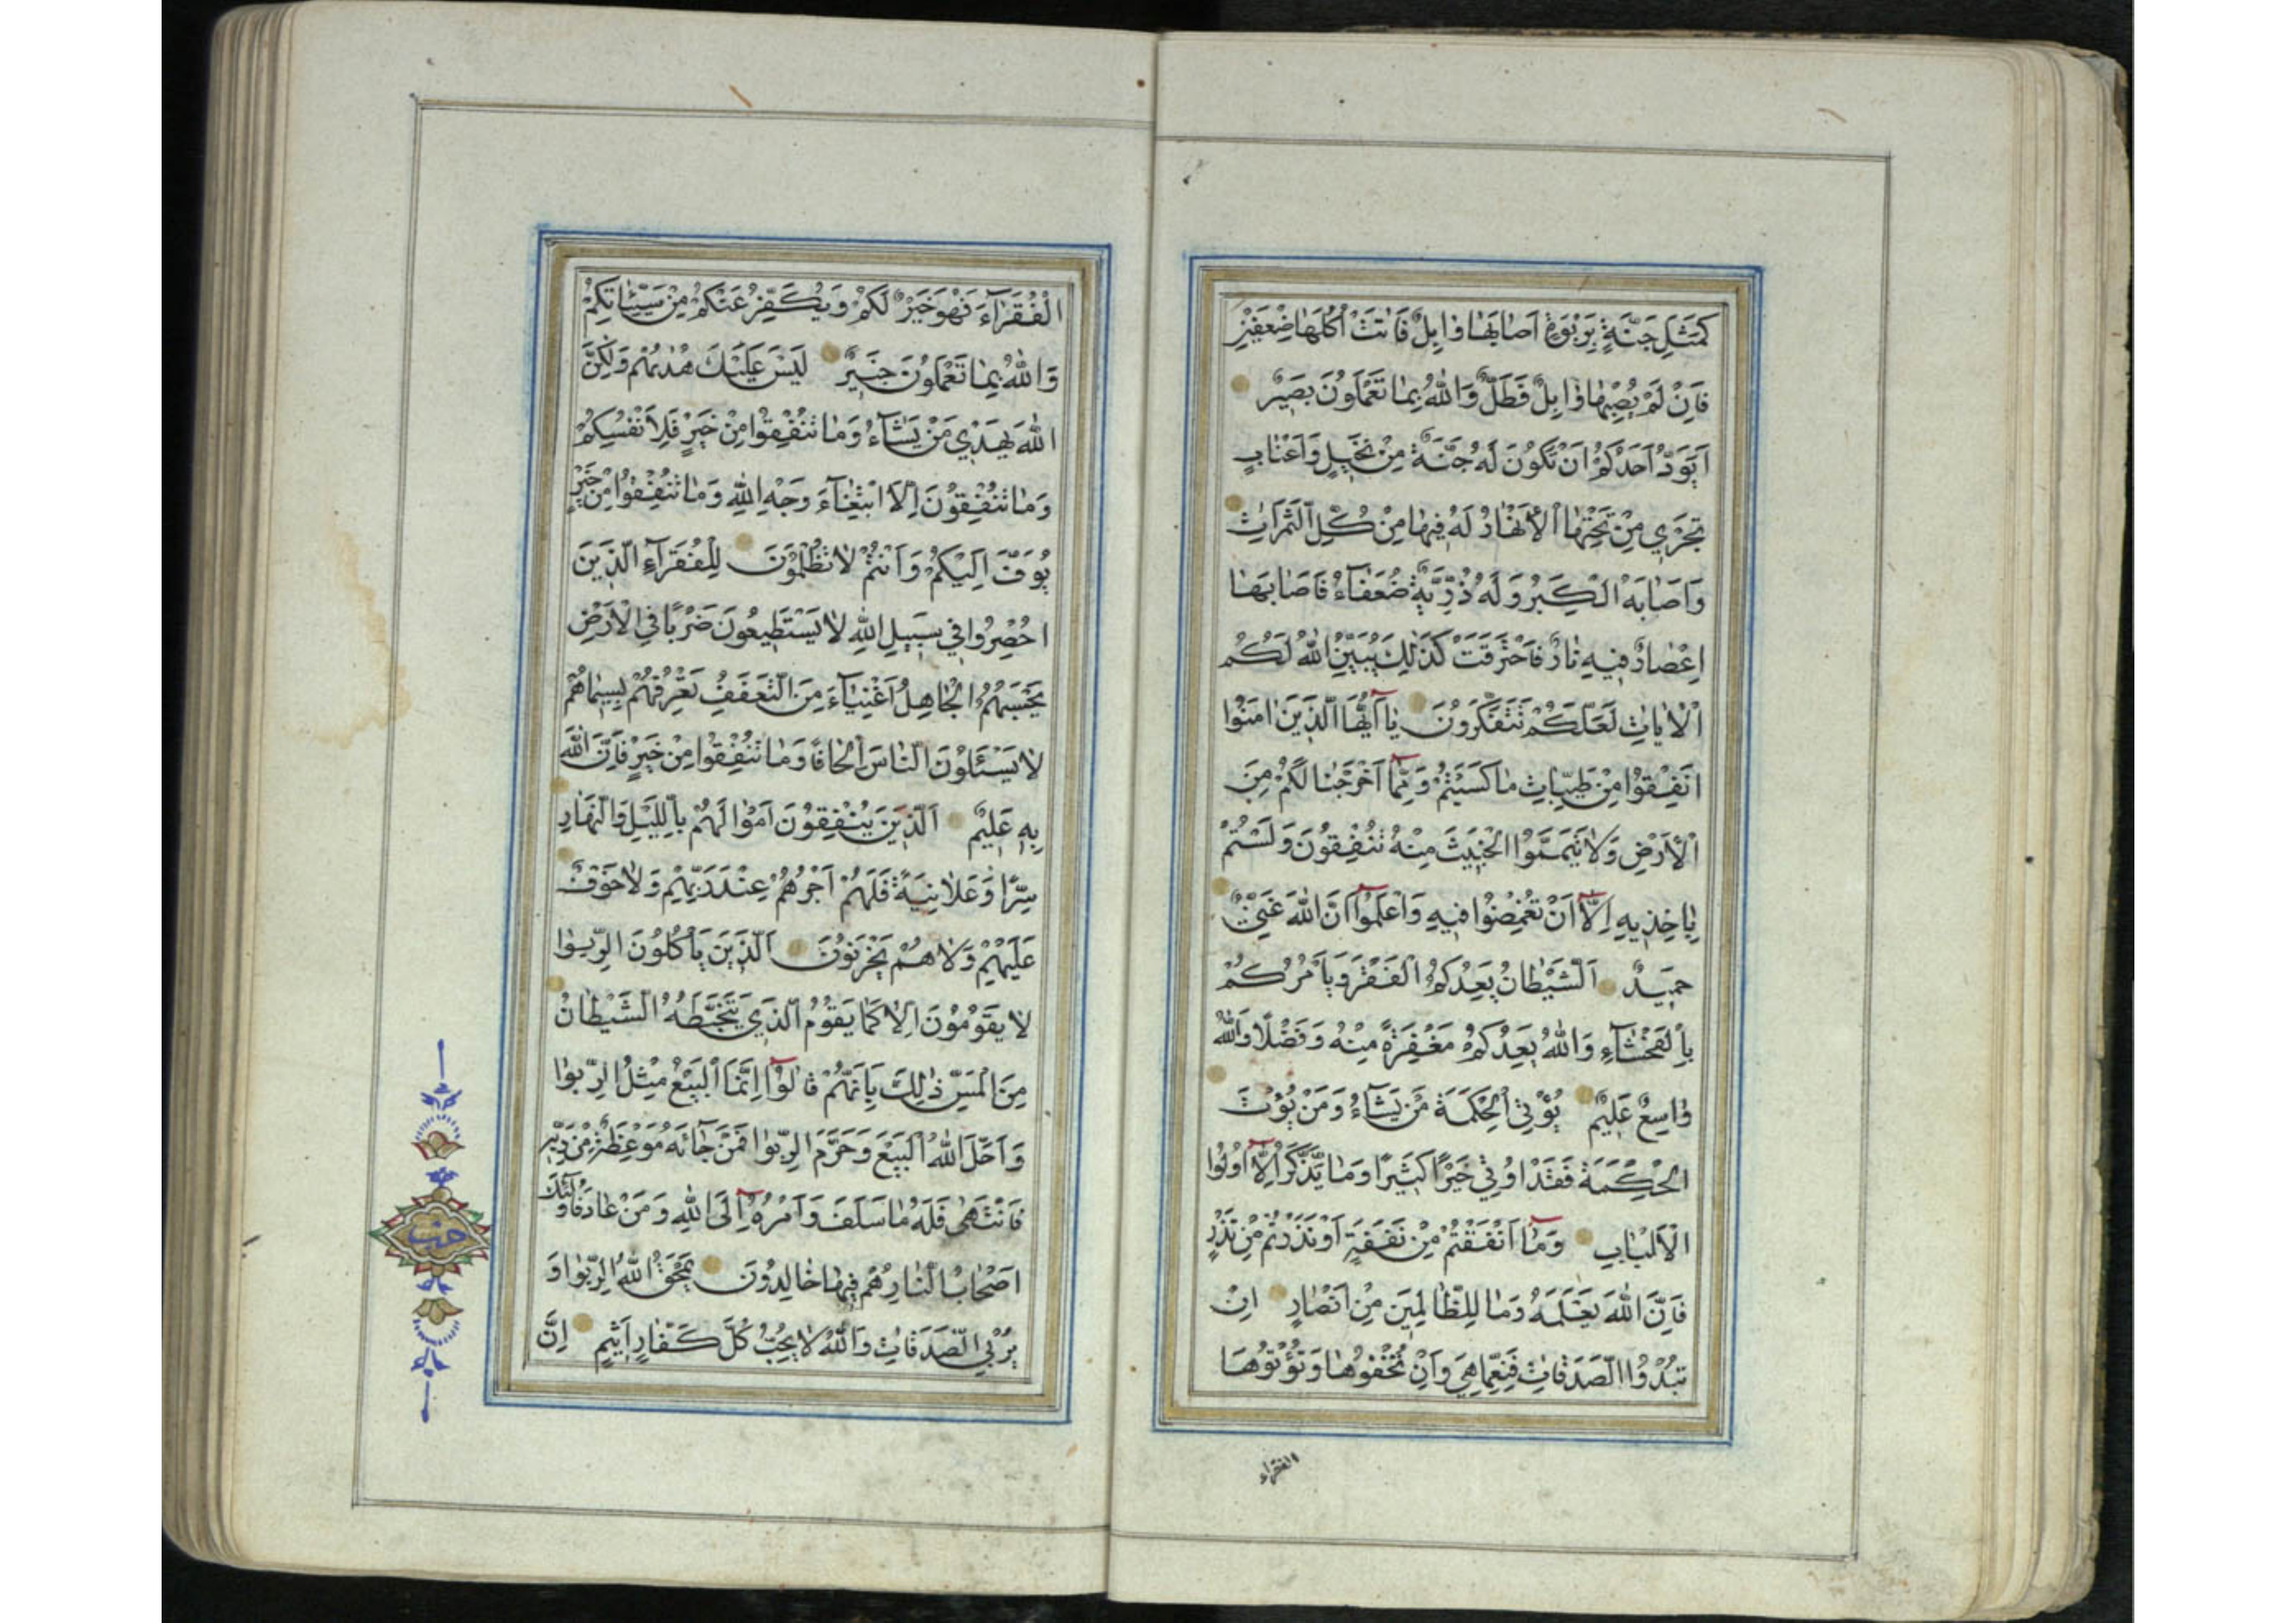 كَمَثَلِ جَنَّةٍ بِرَبْوَةٍ اَصَابَهَا وَابِلٌ فَاٰتَتْ اُكُلَهَا ضِعْفَيْنِ
فَاِنْ لَمْ يُصِبْهَا وَابِلٌ فَطَلٌّ وَاللّٰهُ بِمَا تَعْمَلُونَ بَصِيرٌ
اَيَوَدُّ اَحَدُكُمْ اَنْ تَكُونَ لَهُ جَنَّةٌ مِنْ نَخِيلٍ وَاَعْنَابٍ
تَجْرِي مِنْ تَحْتِهَا الْاَنْهَارُ لَهُ فِيهَا مِنْ كُلِّ الثَّمَرَاتِ
وَاَصَابَهُ الْكِبَرُ وَلَهُ ذُرِّيَّةٌ ضُعَفَاءُ فَاَصَابَهَا
اِعْصَارٌ فِيهِ نَارٌ فَاحْتَرَقَتْ كَذٰلِكَ يُبَيِّنُ اللّٰهُ لَكُمُ
الْاٰيَاتِ لَعَلَّكُمْ تَتَفَكَّرُونَ يَا اَيُّهَا الَّذِينَ اٰمَنُوا
اَنْفِقُوا مِنْ طَيِّبَاتِ مَا كَسَبْتُمْ وَمِمَّا اَخْرَجْنَا لَكُمْ مِنَ
الْاَرْضِ وَلَا تَيَمَّمُوا الْخَبِيثَ مِنْهُ تُنْفِقُونَ وَلَسْتُمْ
بِاٰخِذِيهِ اِلَّا اَنْ تُغْمِضُوا فِيهِ وَاعْلَمُوا اَنَّ اللّٰهَ غَنِيٌّ
حَمِيدٌ اَلشَّيْطَانُ يَعِدُكُمُ الْفَقْرَ وَيَاْمُرُكُمْ
بِالْفَحْشَاءِ وَاللّٰهُ يَعِدُكُمْ مَغْفِرَةً مِنْهُ وَفَضْلًا وَاللّٰهُ
وَاسِعٌ عَلِيمٌ يُؤْتِي الْحِكْمَةَ مَنْ يَشَاءُ وَمَنْ يُؤْتَ
الْحِكْمَةَ فَقَدْ اُوتِيَ خَيْرًا كَثِيرًا وَمَا يَذَّكَّرُ اِلَّا اُولُوا
الْاَلْبَابِ وَمَا اَنْفَقْتُمْ مِنْ نَفَقَةٍ اَوْ نَذَرْتُمْ مِنْ نَذْرٍ
فَاِنَّ اللّٰهَ يَعْلَمُهُ وَمَا لِلظَّالِمِينَ مِنْ اَنْصَارٍ اِنْ
تُبْدُوا الصَّدَقَاتِ فَنِعِمَّا هِيَ وَاِنْ تُخْفُوهَا وَتُؤْتُوهَا
الفقراء
الْفُقَرَاءَ فَهُوَ خَيْرٌ لَكُمْ وَيُكَفِّرُ عَنْكُمْ مِنْ سَيِّئَاتِكُمْ
وَاللّٰهُ بِمَا تَعْمَلُونَ خَبِيرٌ لَيْسَ عَلَيْكَ هُدٰيهُمْ وَلٰكِنَّ
اللّٰهَ يَهْدِي مَنْ يَشَاءُ وَمَا تُنْفِقُوا مِنْ خَيْرٍ فَلِاَنْفُسِكُمْ
وَمَا تُنْفِقُونَ اِلَّا ابْتِغَاءَ وَجْهِ اللّٰهِ وَمَا تُنْفِقُوا مِنْ خَيْرٍ
يُوَفَّ اِلَيْكُمْ وَاَنْتُمْ لَا تُظْلَمُونَ لِلْفُقَرَاءِ الَّذِينَ
اُحْصِرُوا فِي سَبِيلِ اللّٰهِ لَا يَسْتَطِيعُونَ ضَرْبًا فِي الْاَرْضِ
يَحْسَبُهُمُ الْجَاهِلُ اَغْنِيَاءَ مِنَ التَّعَفُّفِ تَعْرِفُهُمْ بِسِيمَاهُمْ
لَا يَسْئَلُونَ النَّاسَ اِلْحَافًا وَمَا تُنْفِقُوا مِنْ خَيْرٍ فَاِنَّ اللّٰهَ
بِهِ عَلِيمٌ اَلَّذِينَ يُنْفِقُونَ اَمْوَالَهُمْ بِاللَّيْلِ وَالنَّهَارِ
سِرًّا وَعَلَانِيَةً فَلَهُمْ اَجْرُهُمْ عِنْدَ رَبِّهِمْ وَلَا خَوْفٌ
عَلَيْهِمْ وَلَا هُمْ يَحْزَنُونَ اَلَّذِينَ يَاْكُلُونَ الرِّبٰوا
لَا يَقُومُونَ اِلَّا كَمَا يَقُومُ الَّذِي يَتَخَبَّطُهُ الشَّيْطَانُ
مِنَ الْمَسِّ ذٰلِكَ بِاَنَّهُمْ قَالُوا اِنَّمَا الْبَيْعُ مِثْلُ الرِّبٰوا
وَاَحَلَّ اللّٰهُ الْبَيْعَ وَحَرَّمَ الرِّبٰوا فَمَنْ جَائَهُ مَوْعِظَةٌ مِنْ رَبِّهِ
فَانْتَهٰى فَلَهُ مَا سَلَفَ وَاَمْرُهُ اِلَى اللّٰهِ وَمَنْ عَادَ فَاُولٰئِكَ
اَصْحَابُ النَّارِ هُمْ فِيهَا خَالِدُونَ يَمْحَقُ اللّٰهُ الرِّبٰوا وَ
يُرْبِي الصَّدَقَاتِ وَاللّٰهُ لَا يُحِبُّ كُلَّ كَفَّارٍ اَثِيمٍ اِنَّ
حزب